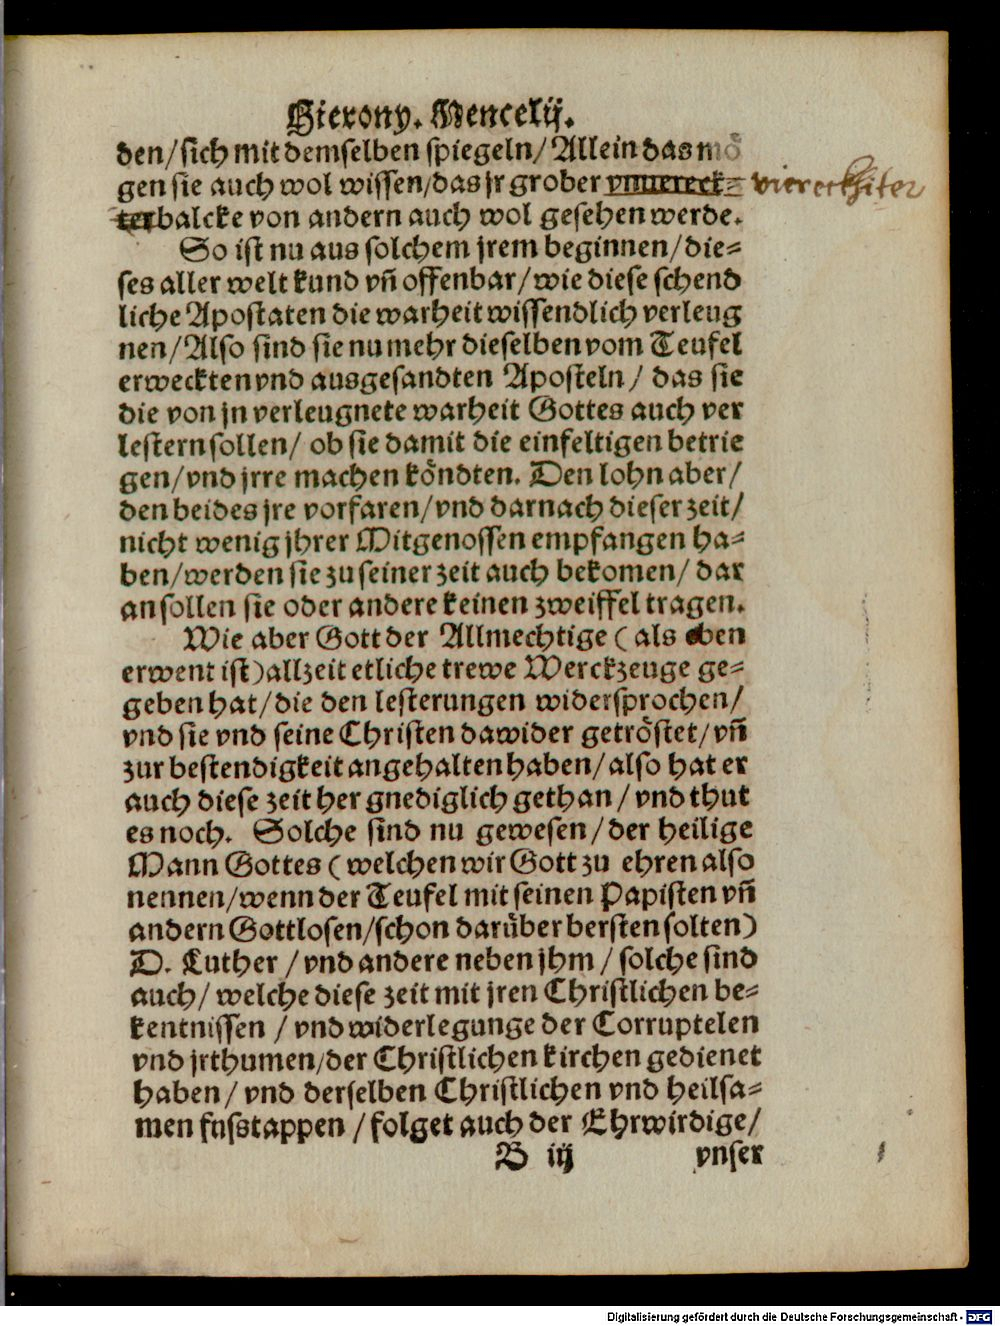 Hierony. Mencelij.
den/sich mit demselben spiegeln/Allein das mö
gen sie auch wol wissen/das jr grober vnuiereck= viereckhiter
terbalcke von andern auch wol gesehen werde.
So ist nu aus solchem jrem beginnen/die=
ses aller welt kund vñ offenbar/wie diese schend
liche Apostaten die warheit wissendlich verleug
nen/Also sind sie nu mehr dieselben vom Teufel
erweckten vnd ausgesandten Aposteln/ das sie
die von jn verleugnete warheit Gottes auch ver
lestern sollen/ ob sie damit die einfeltigen betrie
gen/vnd jrre machen köndten. Den lohn aber/
den beides jre vorfaren/vnd darnach dieser zeit/
nicht wenig jhrer Mitgenossen empfangen ha=
ben/werden sie zu seiner zeit auch bekomen/ dar
an sollen sie oder andere keinen zweiffel tragen.
Wie aber Gott der Allmechtige ( als eben
erwent ist)allzeit etliche trewe Werckzeuge ge=
geben hat/die den lesterungen widersprochen/
vnd sie vnd seine Christen dawider getröstet/vñ
zur bestendigkeit angehalten haben/also hat er
auch diese zeit her gnediglich gethan/vnd thut
es noch. Solche sind nu gewesen/der heilige
Mann Gottes ( welchen wir Gott zu ehren also
nennen/wenn der Teufel mit seinen Papisten vñ
andern Gottlosen/schon darüber bersten solten)
D. Luther /vnd andere neben jhm / solche sind
auch/ welche diese zeit mit jren Christlichen be=
kentnissen / vnd widerlegunge der Corruptelen
vnd jrthumen/der Christlichen kirchen gedienet
haben / vnd derselben Christlichen vnd heilsa=
men fusstappen /folget auch der Ehrwirdige/
B iij vnser
Digitalisierung gefördert durch die Deutsche Forschungsgemeinschaft - DFG